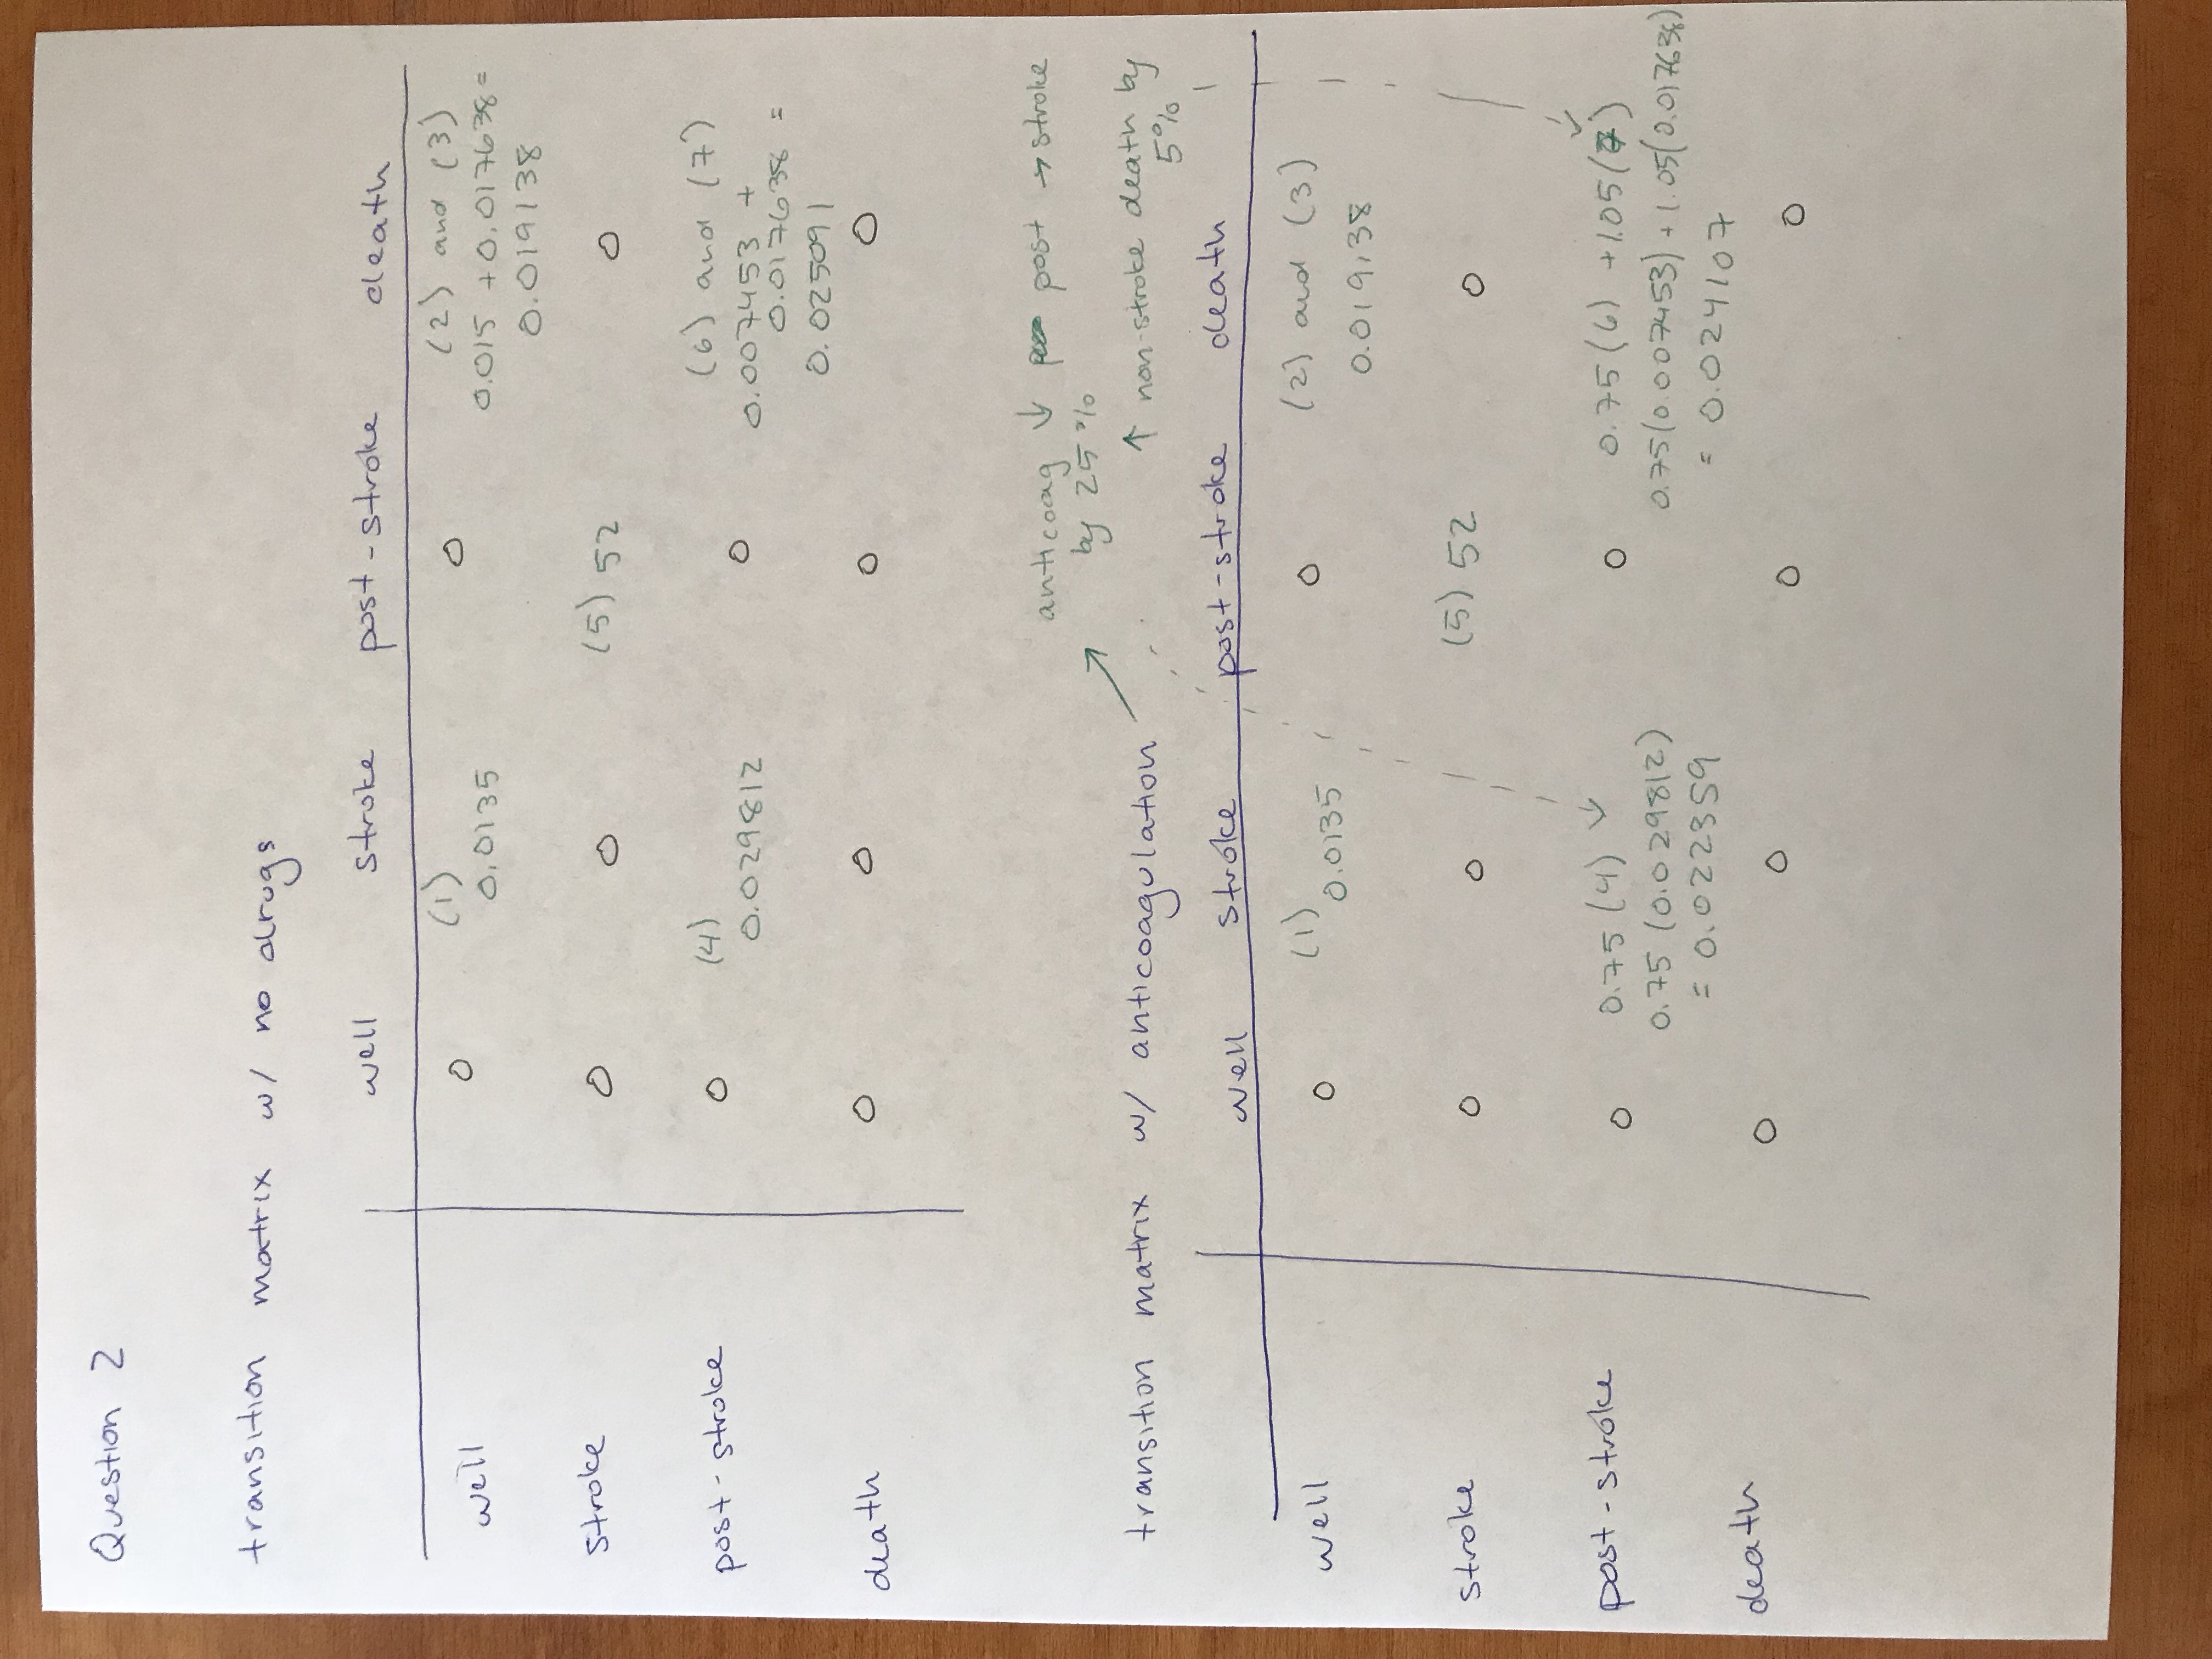 Question 2
transition matrix w/ no drugs
well stroke post-stroke death
well 0 (1) 0.0135 0 (2) and (3)
0.015 + 0.017638 =
0.019138
stroke 0 0 (5) 52 0
post-stroke 0 (4) 0.029812 0 (6) and (7)
0.007453 +
0.017638 =
0.025091
death 0 0 0 0
anticoag ↓ post → stroke
by 25%
transition matrix w/ anticoagulation ↑ non-stroke death by
5%
well stroke post-stroke death
well 0 (1) 0.0135 0 (2) and (3)
0.019138
stroke 0 0 (5) 52 0
post-stroke 0 0.75 (4) 0 0.75 (6) + 1.05 (7)
0.75 (0.029812) 0.75 (0.007453) + 1.05 (0.017638)
= 0.022359 = 0.024107
death 0 0 0 0